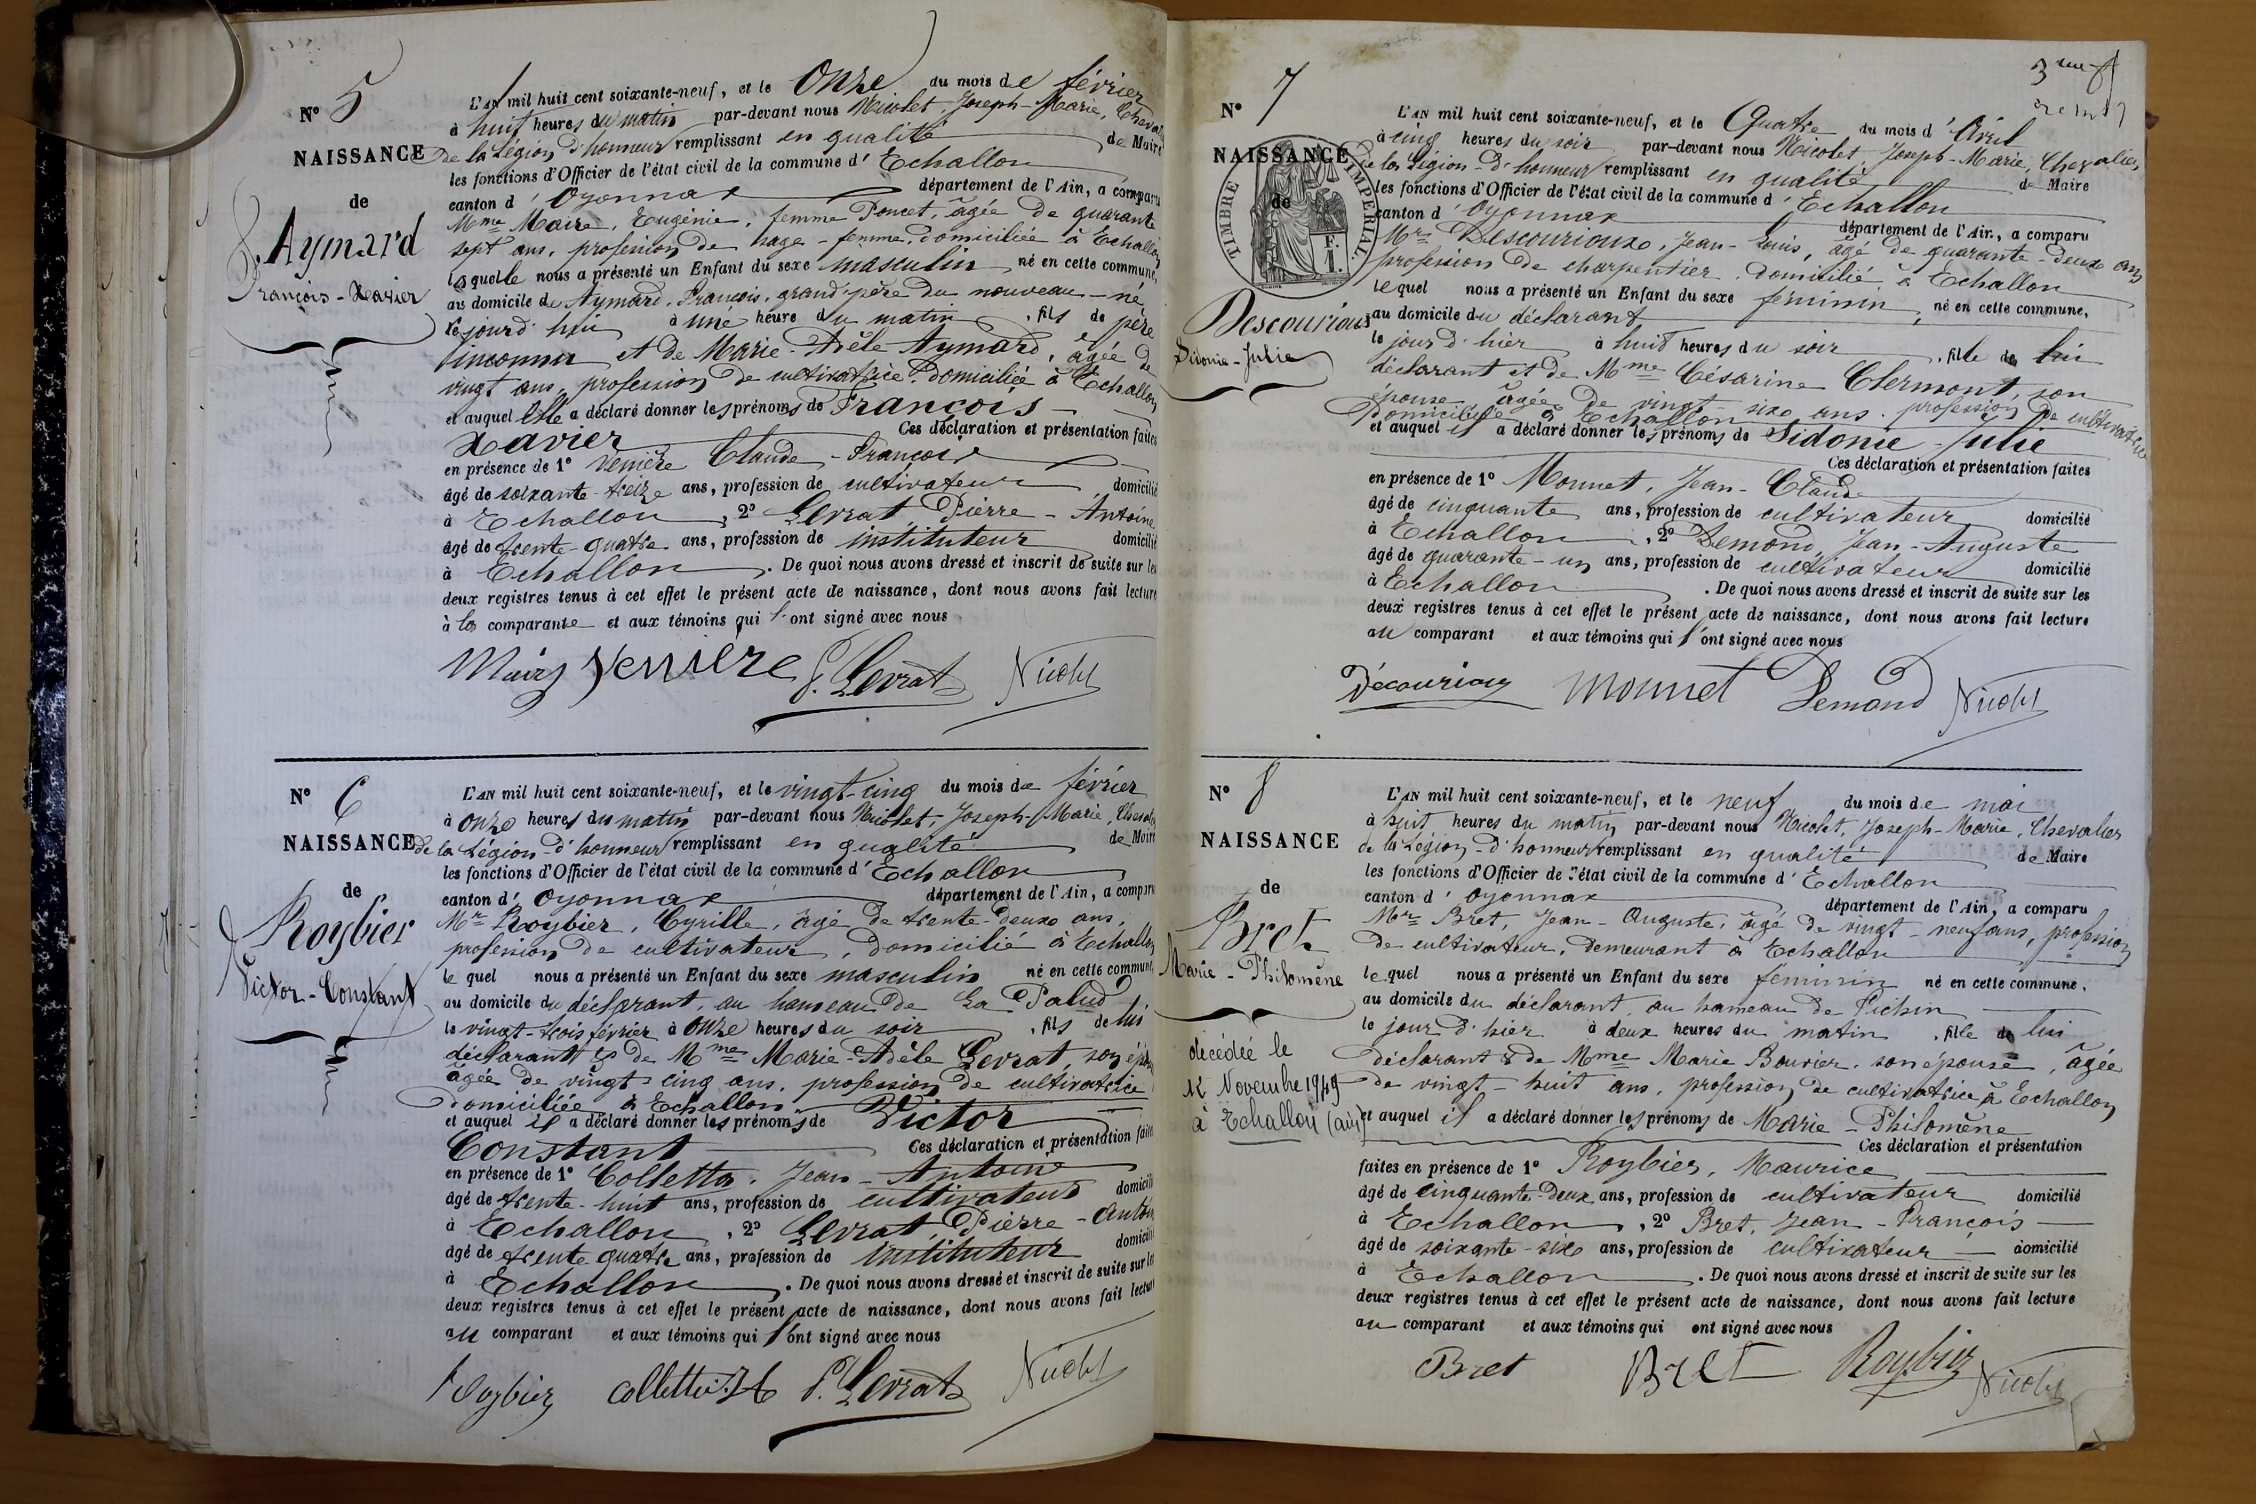 N° 5
NAISSANCE
de
Aymard
François-Xavier
L'AN mil huit cent soixante-neuf, et le Onze du mois de février
à huit heures du matin par-devant nous Nicolet, Joseph-Marie, Chevalier
de la Légion d'honneur remplissant en qualité de Maire
les fonctions d'Officier de l'état civil de la commune d'Echallon
canton d'Oyonnax département de l'Ain, a comparu
Mme Maire, Eugénie, femme Poncet, âgée de quarante
sept ans, profession de sage-femme, domiciliée à Echallon
laquelle nous a présenté un Enfant du sexe masculin né en cette commune,
au domicile de Aymard, François, grand'père du nouveau-né
ce jourd'hui à une heure du matin, fils de père
inconnu et de Marie-Adèle Aymard, âgée de
vingt ans, profession de cultivatrice, domiciliée à Echallon
et auquel Elle a déclaré donner les prénoms de François
Xavier Ces déclaration et présentation faites
en présence de 1° Venière Claude-François
âgé de soixante-treize ans, profession de cultivateur domicilié
à Echallon, 2° Levrat Pierre-Antoine
âgé de trente-quatre ans, profession de instituteur domicilié
à Echallon. De quoi nous avons dressé et inscrit de suite sur les
deux registres tenus à cet effet le présent acte de naissance, dont nous avons fait lecture
à la comparante et aux témoins qui l'ont signé avec nous
Maire Venière P. Levrat Nicolet
N° 6
NAISSANCE
de
Roybier
Victor-Constant
L'AN mil huit cent soixante-neuf, et le vingt-cinq du mois de février
à onze heures du matin par-devant nous Nicolet, Joseph-Marie, Chevalier
de la Légion d'honneur remplissant en qualité de Maire
les fonctions d'Officier de l'état civil de la commune d'Echallon
canton d'Oyonnax département de l'Ain, a comparu
Mr Roybier, Cyrille, âgé de trente-deux ans,
profession de cultivateur, domicilié à Echallon
lequel nous a présenté un Enfant du sexe masculin né en cette commune
au domicile du déclarant, au hameau de La Palud
le vingt-trois février à onze heures du soir, fils de lui
déclarant & de Mme Marie-Adèle Levrat, son épouse
âgée de vingt cinq ans, profession de cultivatrice
domiciliée à Echallon
et auquel il a déclaré donner les prénoms de Victor
Constant Ces déclaration et présentation faites
en présence de 1° Colletta, Jean-Antoine
âgé de trente-huit ans, profession de cultivateur domicilié
à Echallon, 2° Levrat, Pierre-Antoine
âgé de trente quatre ans, profession de instituteur domicilié
à Echallon. De quoi nous avons dressé et inscrit de suite sur les
deux registres tenus à cet effet le présent acte de naissance, dont nous avons fait lecture
au comparant et aux témoins qui l'ont signé avec nous
Roybier P. Levrat Nicolet
N° 7
NAISSANCE
de
TIMBRE IMPÉRIAL
Descourioux
Sidonie-Julie
L'AN mil huit cent soixante-neuf, et le Quatre du mois d'Avril
à cinq heures du soir par-devant nous Nicolet, Joseph-Marie, Chevalier
de la Légion-d'honneur remplissant en qualité de Maire
les fonctions d'Officier de l'état civil de la commune d'Echallon
canton d'Oyonnax département de l'Ain, a comparu
Mr Descourioux, Jean-Louis, âgé de quarante-deux ans
profession de charpentier, domicilié à Echallon
lequel nous a présenté un Enfant du sexe féminin, né en cette commune,
au domicile du déclarant
le jour d'hier à huit heures du soir, fille de lui
déclarant et de Mme Césarine Clermont, son
épouse âgée de vingt-six ans, profession de cultivatrice
domiciliée à Echallon
et auquel il a déclaré donner les prénoms de Sidonie-Julie
Ces déclaration et présentation faites
en présence de 1° Monnet, Jean-Claude
âgé de cinquante ans, profession de cultivateur domicilié
à Echallon, 2° Demond, Jean-Auguste
âgé de quarante-un ans, profession de cultivateur domicilié
à Echallon. De quoi nous avons dressé et inscrit de suite sur les
deux registres tenus à cet effet le présent acte de naissance, dont nous avons fait lecture
au comparant et aux témoins qui l'ont signé avec nous
Décourioux Monnet Demond Nicolet
N° 8
NAISSANCE
de
Bret
Marie-Philomène
décédée le
12 Novembre 1949
à Echallon (Ain)
L'AN mil huit cent soixante-neuf, et le neuf du mois de mai
à huit heures du matin par-devant nous Nicolet, Joseph-Marie, Chevalier
de la Légion-d'honneur remplissant en qualité de Maire
les fonctions d'Officier de l'état civil de la commune d'Echallon
canton d'Oyonnax département de l'Ain, a comparu
Mr Bret, Jean-Auguste, âgé de vingt-neuf ans, profession
de cultivateur, demeurant à Echallon
lequel nous a présenté un Enfant du sexe féminin né en cette commune,
au domicile du déclarant, au hameau de
le jour d'hier à deux heures du matin, fille de lui
déclarant & de Mme Marie Bouvier, son épouse, âgée
de vingt-huit ans, profession de cultivatrice à Echallon
et auquel il a déclaré donner les prénoms de Marie-Philomène
Ces déclaration et présentation
faites en présence de 1° Roybier, Maurice
âgé de cinquante-deux ans, profession de cultivateur domicilié
à Echallon, 2° Bret, Jean-François
âgé de soixante-six ans, profession de cultivateur domicilié
à Echallon. De quoi nous avons dressé et inscrit de suite sur les
deux registres tenus à cet effet le présent acte de naissance, dont nous avons fait lecture
au comparant et aux témoins qui ont signé avec nous
Bret Bret Roybier Nicolet